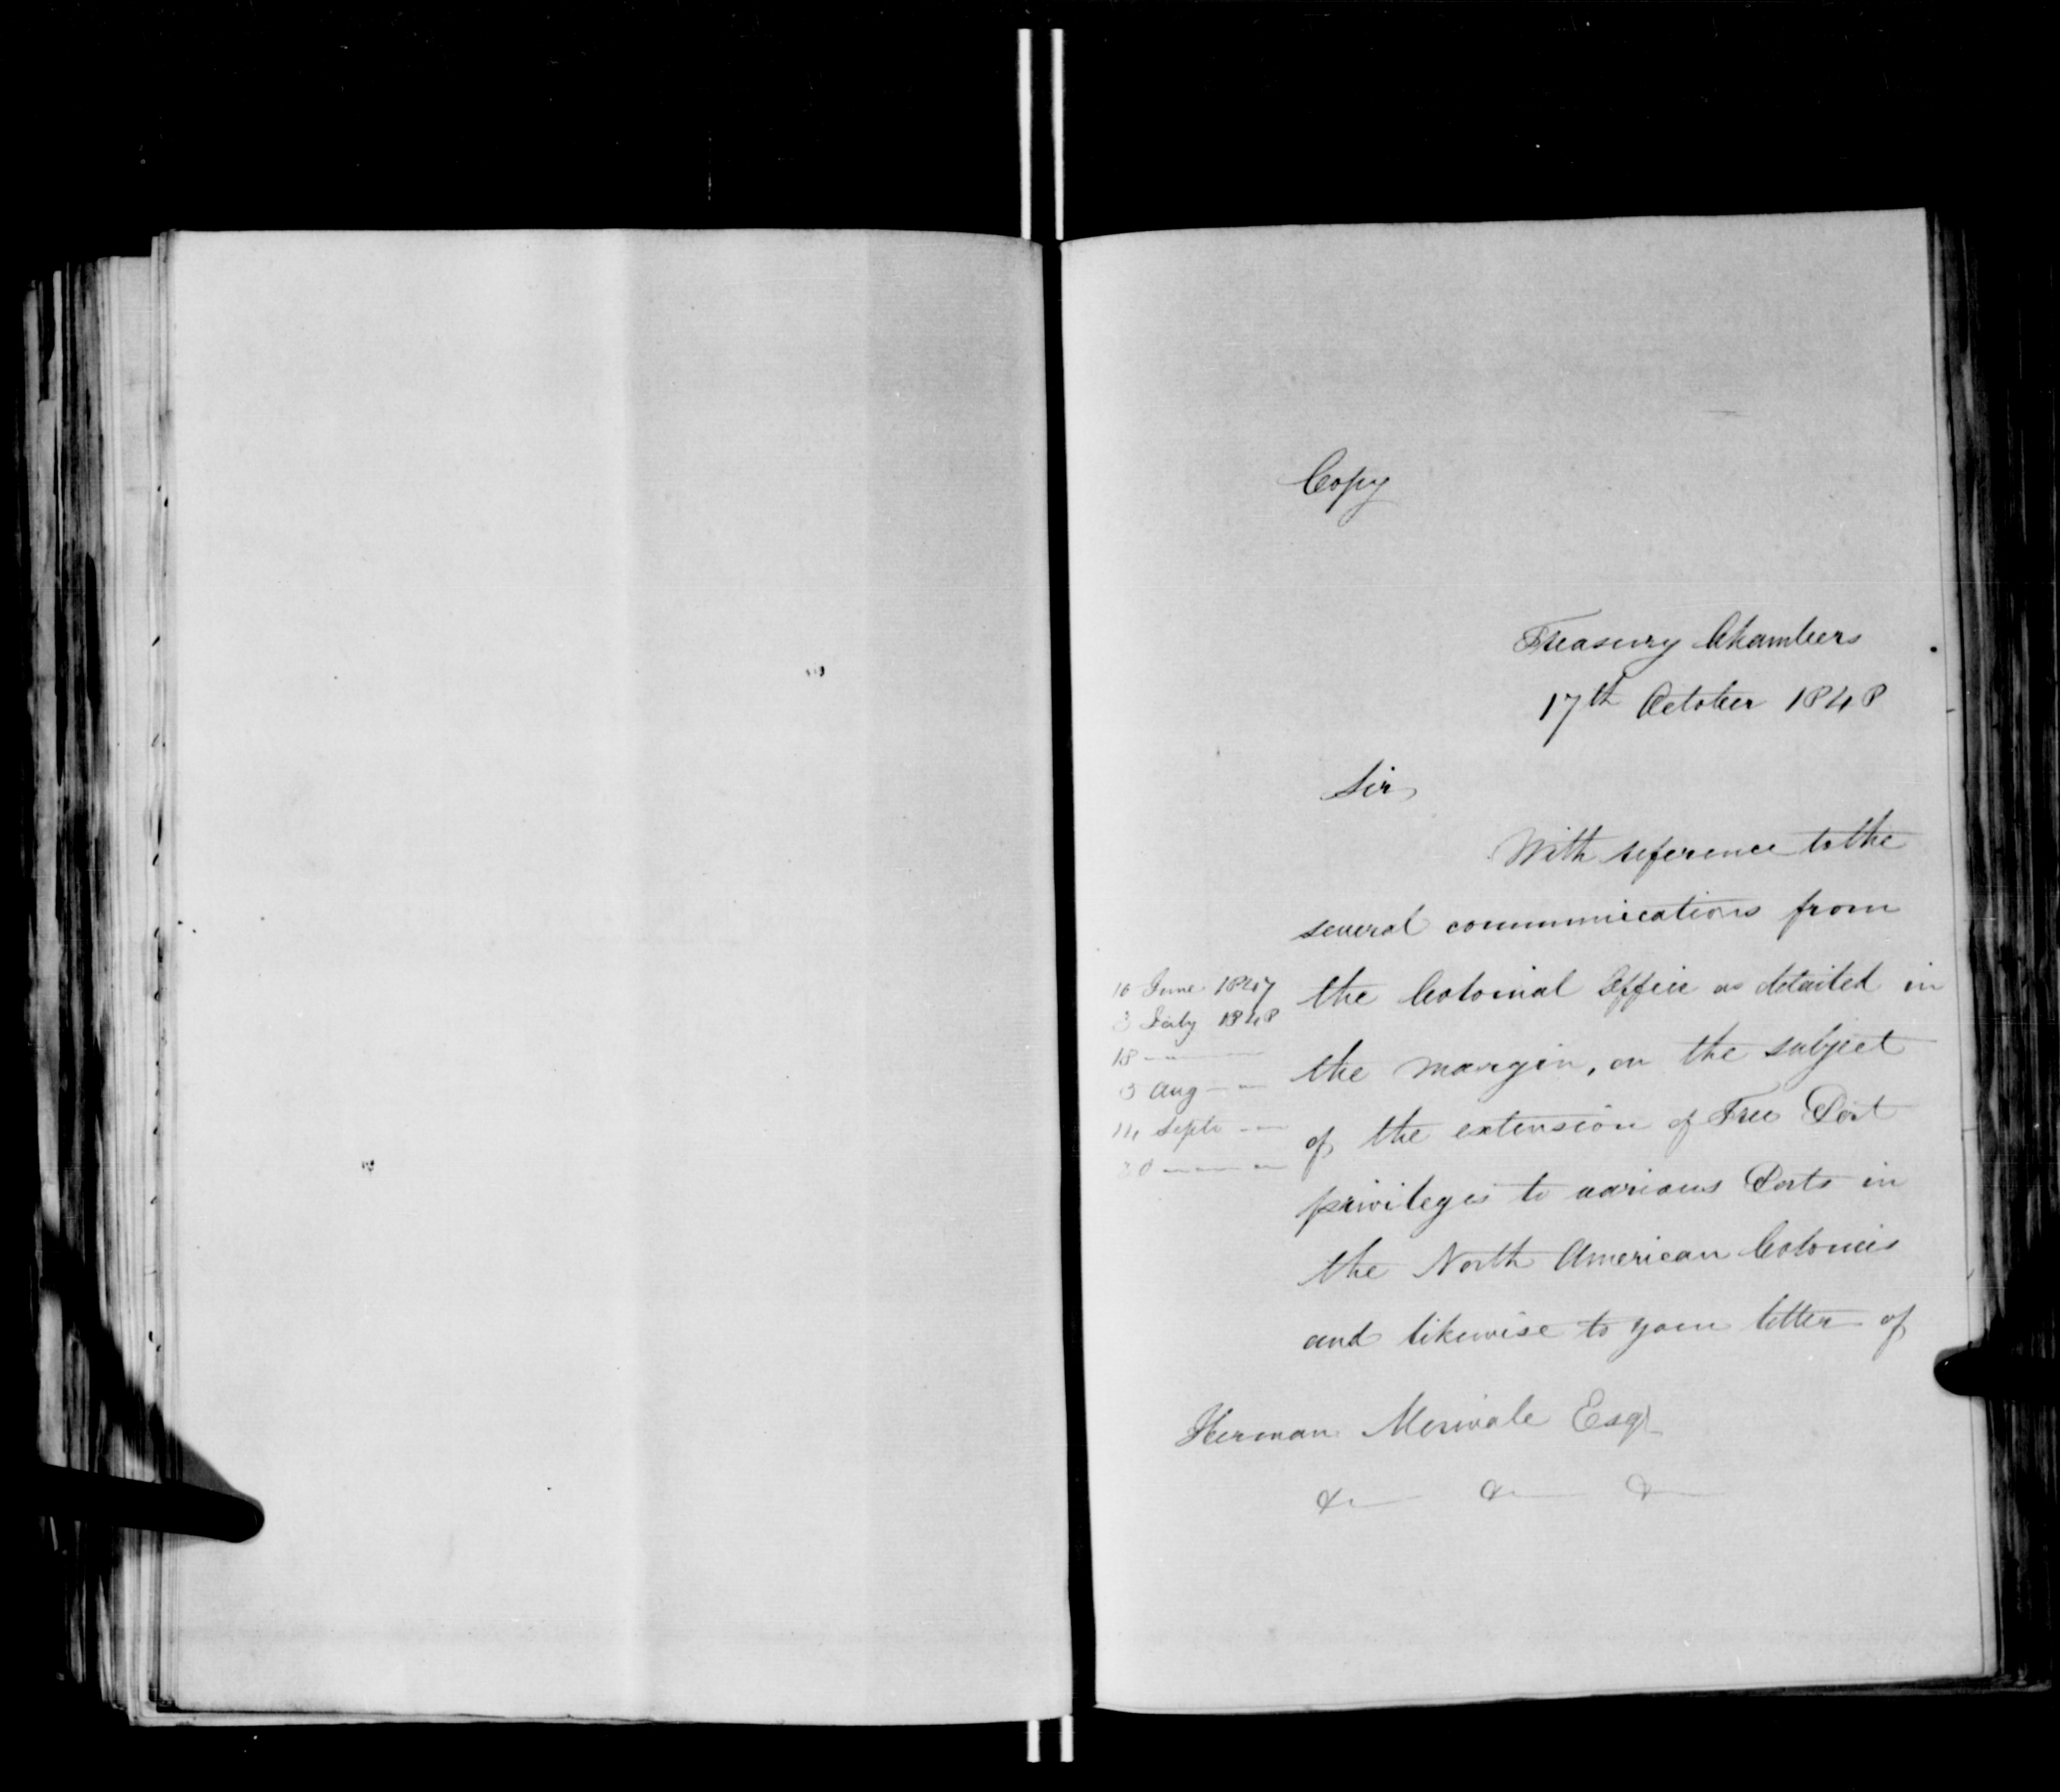 Copy
Treasury Chambers
17th October 1848
Sir,
With reference to the
several communications from
the Colonial Office as detailed in
the margin, on the subject
of the extension of Free Port
privileges to various Ports in
the North American Colonies
and likewise to your letter of
10 June 1847
3 July 1848
18 — " —
3 Aug — " —
14 Septr — " —
30 — " — " —
Herman Merivale Esqr
&c — &c — &c —